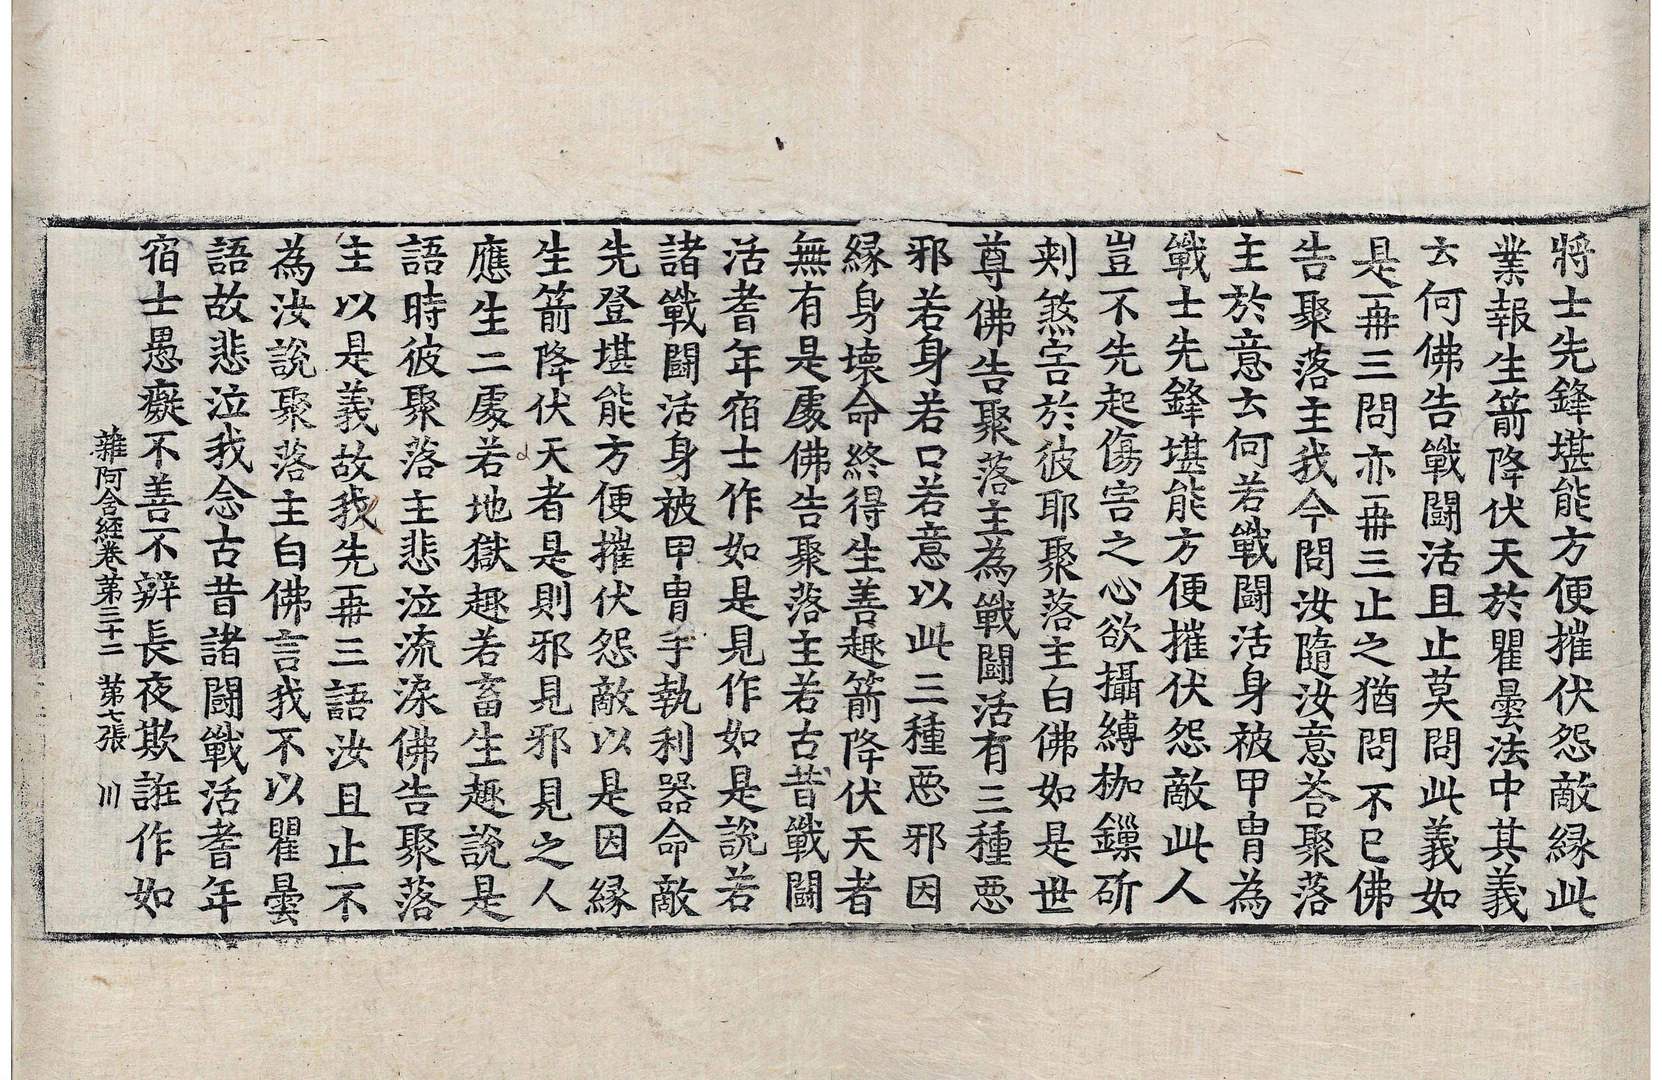 將士先鋒堪能方便摧伏怨敵緣此
業報生箭降伏天於瞿曇法中其義
云何佛告戰鬪活且止莫問此義如
是再三問亦再三止之猶問不已佛
告聚落主我今問汝隨汝意荅聚落
主於意云何若戰鬪活身被甲冑為
戰士先鋒堪能方便摧伏怨敵此人
豈不先起傷害之心欲攝縛枷鏁斫
刺煞害於彼耶聚落主白佛如是世
尊佛告聚落主為戰鬪活有三種惡
邪若身若口若意以此三種惡邪因
緣身壞命終得生善趣箭降伏天者
無有是處佛告聚落主若古昔戰鬪
活耆年宿士作如是見作如是說若
諸戰鬪活身被甲冑手執利器命敵
先登堪能方便摧伏怨敵以是因緣
生箭降伏天者是則邪見邪見之人
應生二處若地獄趣若畜生趣說是
語時彼聚落主悲泣流淚佛告聚落
主以是義故我先再三語汝且止不
為汝說聚落主白佛言我不以瞿曇
語故悲泣我念古昔諸鬪戰活耆年
宿士愚癡不善不辯長夜欺誑作如
雜阿含經卷第三十二 第七張 川